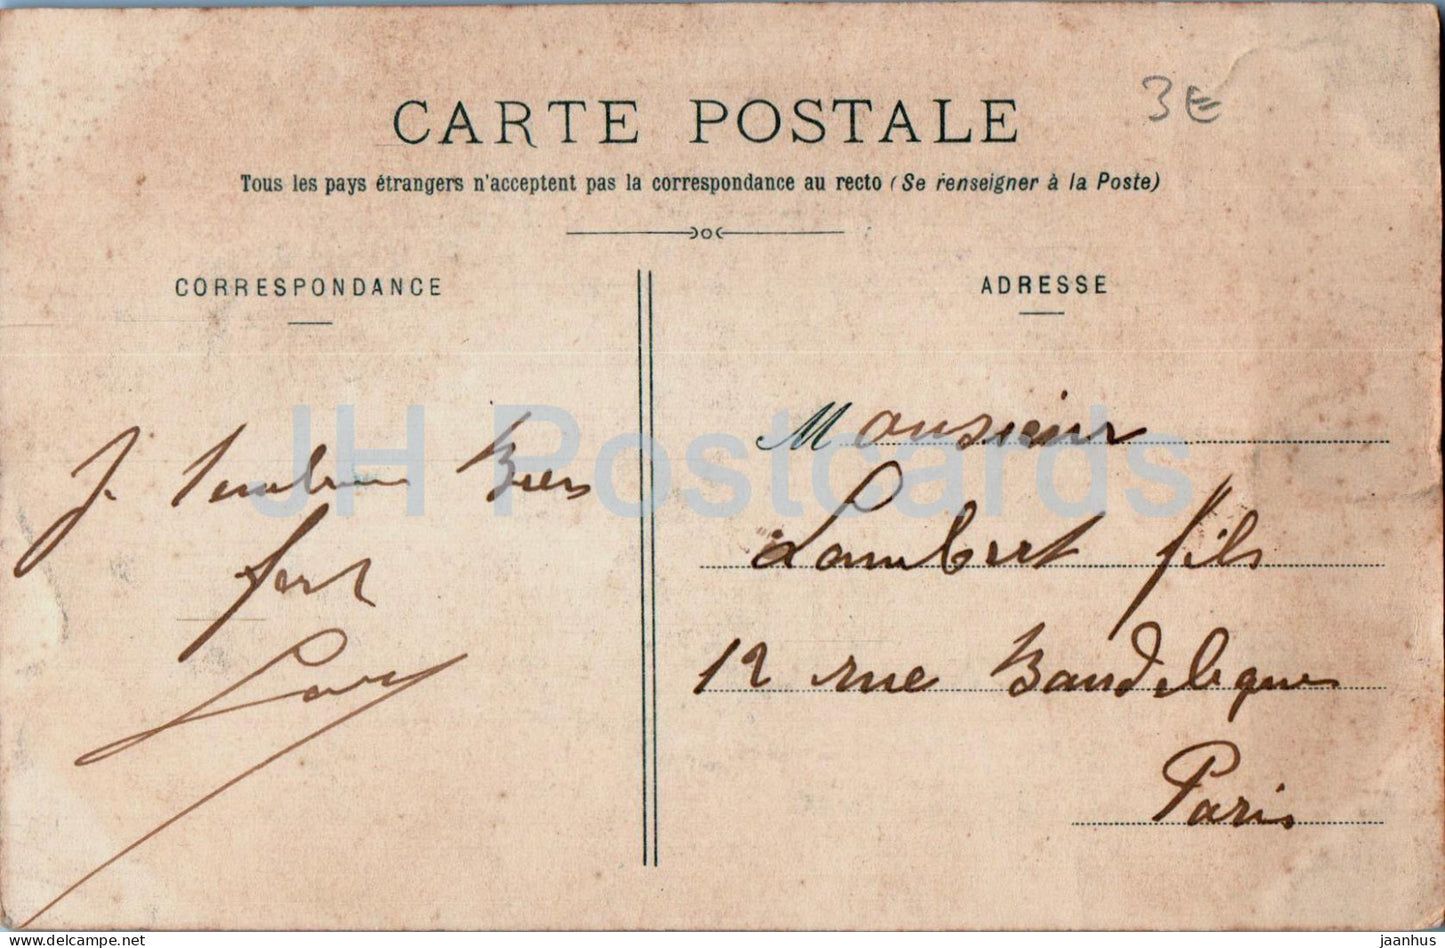 CARTE POSTALE
3€
Tous les pays étrangers n'acceptent pas la correspondance au recto (Se renseigner à la Poste)
CORRESPONDANCE
ADRESSE
JH Postcards
Monsieur
Lambert fils
12 rue
Paris
J.
fort
www.delcampe.net
jaanhus